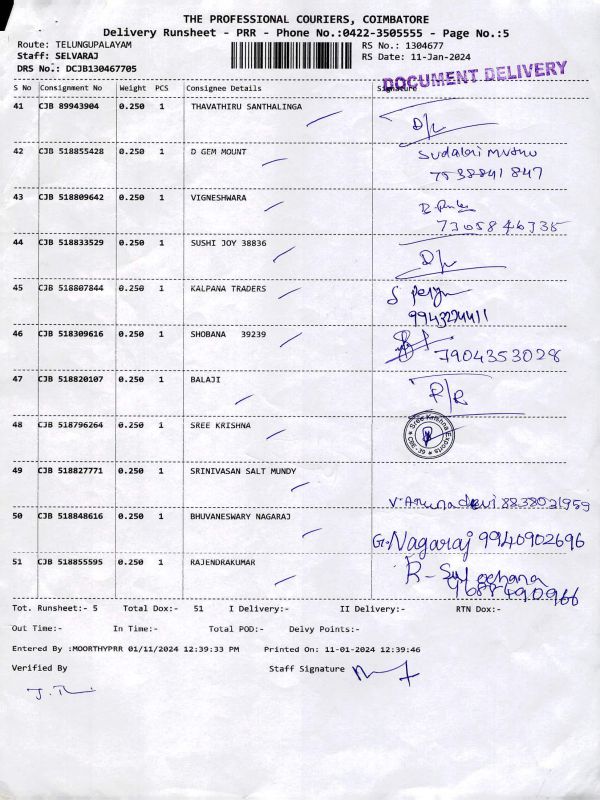 THE PROFESSIONAL COURIERS, COIMBATORE
Delivery Runsheet - PRR - Phone No.:0422-3505555 - Page No.:5
Route: TELUNGUPALAYAM RS No.: 1304677
Staff: SELVARAJ RS Date: 11-Jan-2024
DRS No.: DCJB130467705
DOCUMENT DELIVERY
S No Consignment No Weight PCS Consignee Details Signature
41 CJB 89943904 0.250 1 THAVATHIRU SANTHALINGA D/L
42 CJB 518855428 0.250 1 D GEM MOUNT Sudalai muthu
7538841847
43 CJB 518809642 0.250 1 VIGNESHWARA
7305846335
44 CJB 518833529 0.250 1 SUSHI JOY 38836 D/L
45 CJB 518807844 0.250 1 KALPANA TRADERS
9943224411
46 CJB 518309616 0.250 1 SHOBANA 39239 7904353028
47 CJB 518820107 0.250 1 BALAJI R/R
48 CJB 518796264 0.250 1 SREE KRISHNA Sree Krishna Exports CBE-39
49 CJB 518827771 0.250 1 SRINIVASAN SALT MUNDY
V. Anuradevi 8838021959
50 CJB 518848616 0.250 1 BHUVANESWARY NAGARAJ
G. Nagaraj 9940902696
51 CJB 518855595 0.250 1 RAJENDRAKUMAR R-Sulochana
9688490966
Tot. Runsheet:- 5 Total Dox:- 51 I Delivery:- II Delivery:- RTN Dox:-
Out Time:- In Time:- Total POD:- Delvy Points:-
Entered By :MOORTHYPRR 01/11/2024 12:39:33 PM Printed On: 11-01-2024 12:39:46
Verified By Staff Signature